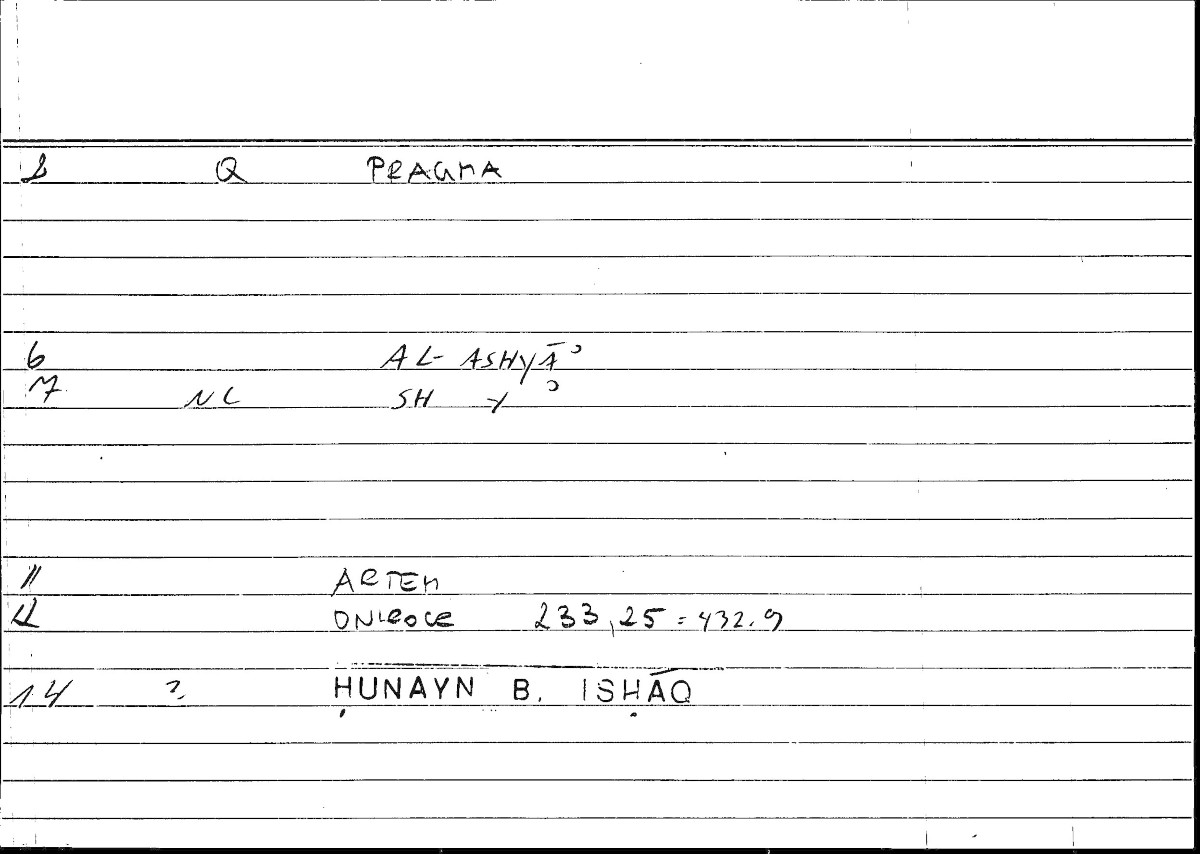 1 Q PRAGMA
6 AL-ASHYĀʾ
7 NL SH Y ʾ
11 ARTEM
12 ONIROCR 233,25 = 432.9
14 ? ḤUNAYN B. ISḤĀQ